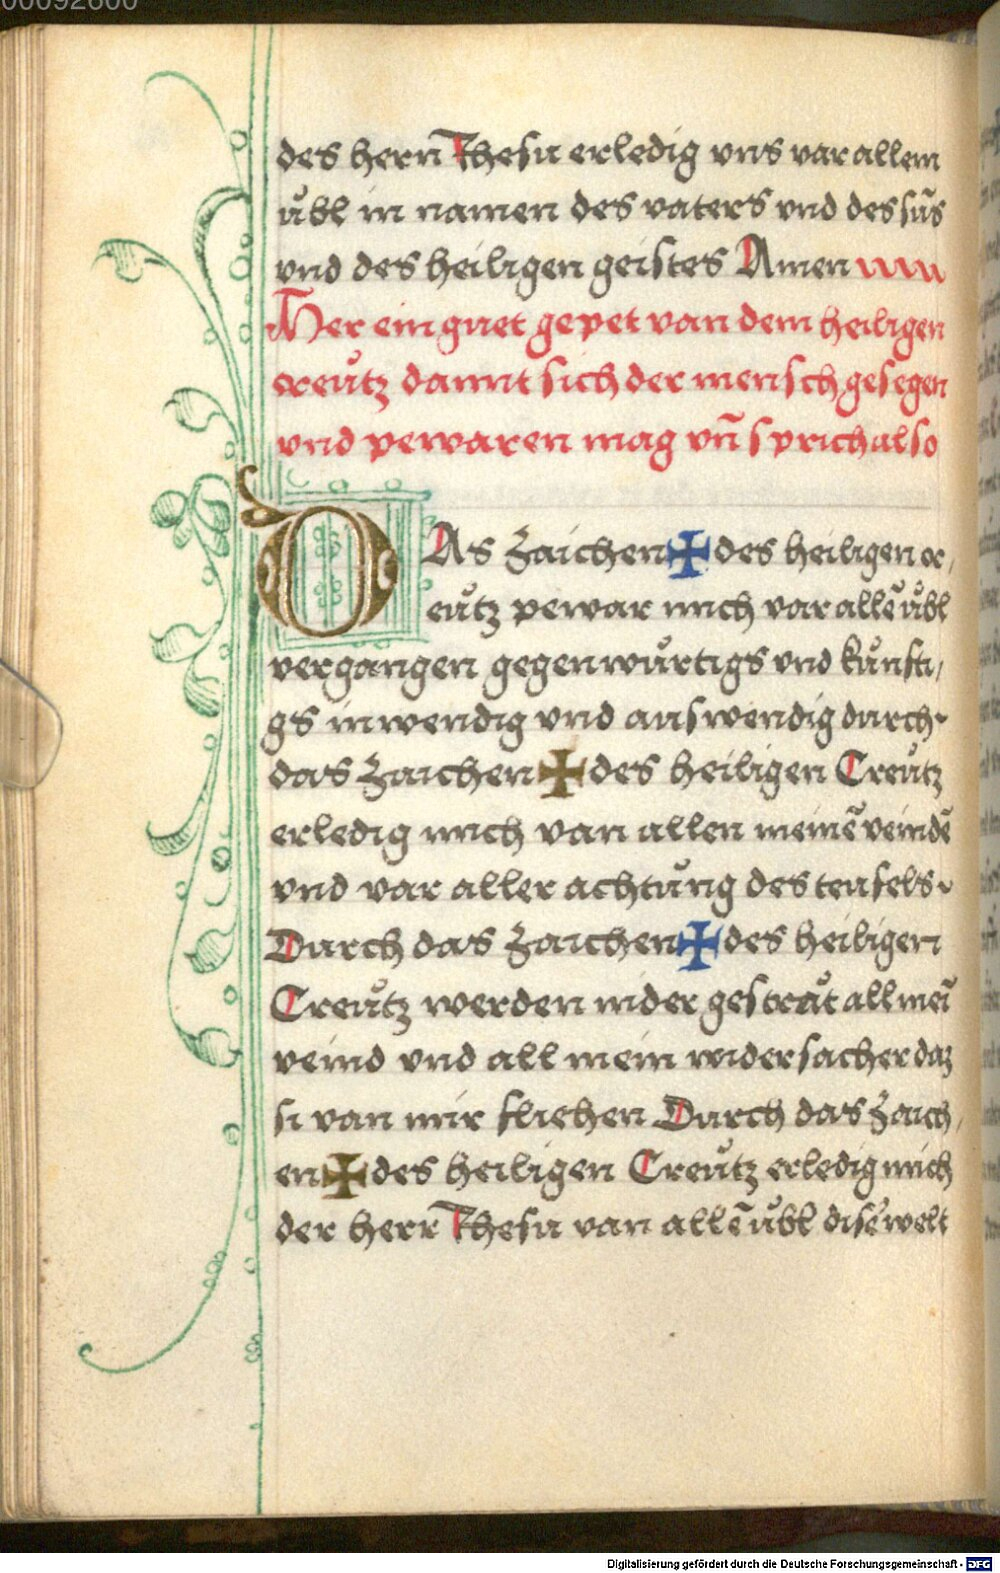 00092600
des hern̄ Jhesu erledig vns var allem
ůbl in namen des vaters vnd des sūs
vnd des heiligen geistes Amen
Mer ein guet gepet van dem heiligen
creůtz damit sich der mensch gesegen
vnd pewaren mag vn̄ sprich also
DAs zaichen ✠ des heiligen cr,
eůtz pewar mich var allē ůbl
vergangen gegenwůrtigs vnd kůnfti,
gs inwendig vnd auswendig durch
das zaichen ✠ des heiligen Creůtz
erledig mich van allen meinē veindē
vnd var aller achtůng des teufels
Durch das zaichen ✠ des heiligen
Creůtz werden nider gesträt all mei̅
veind vnd all mein widersacher daz
si van mir fliehen Durch das zaich,
en ✠ des heiligen Creůtz erledig mich
der herr̄ Jhesu van allē ůbl diser welt
Digitalisierung gefördert durch die Deutsche Forschungsgemeinschaft - DFG